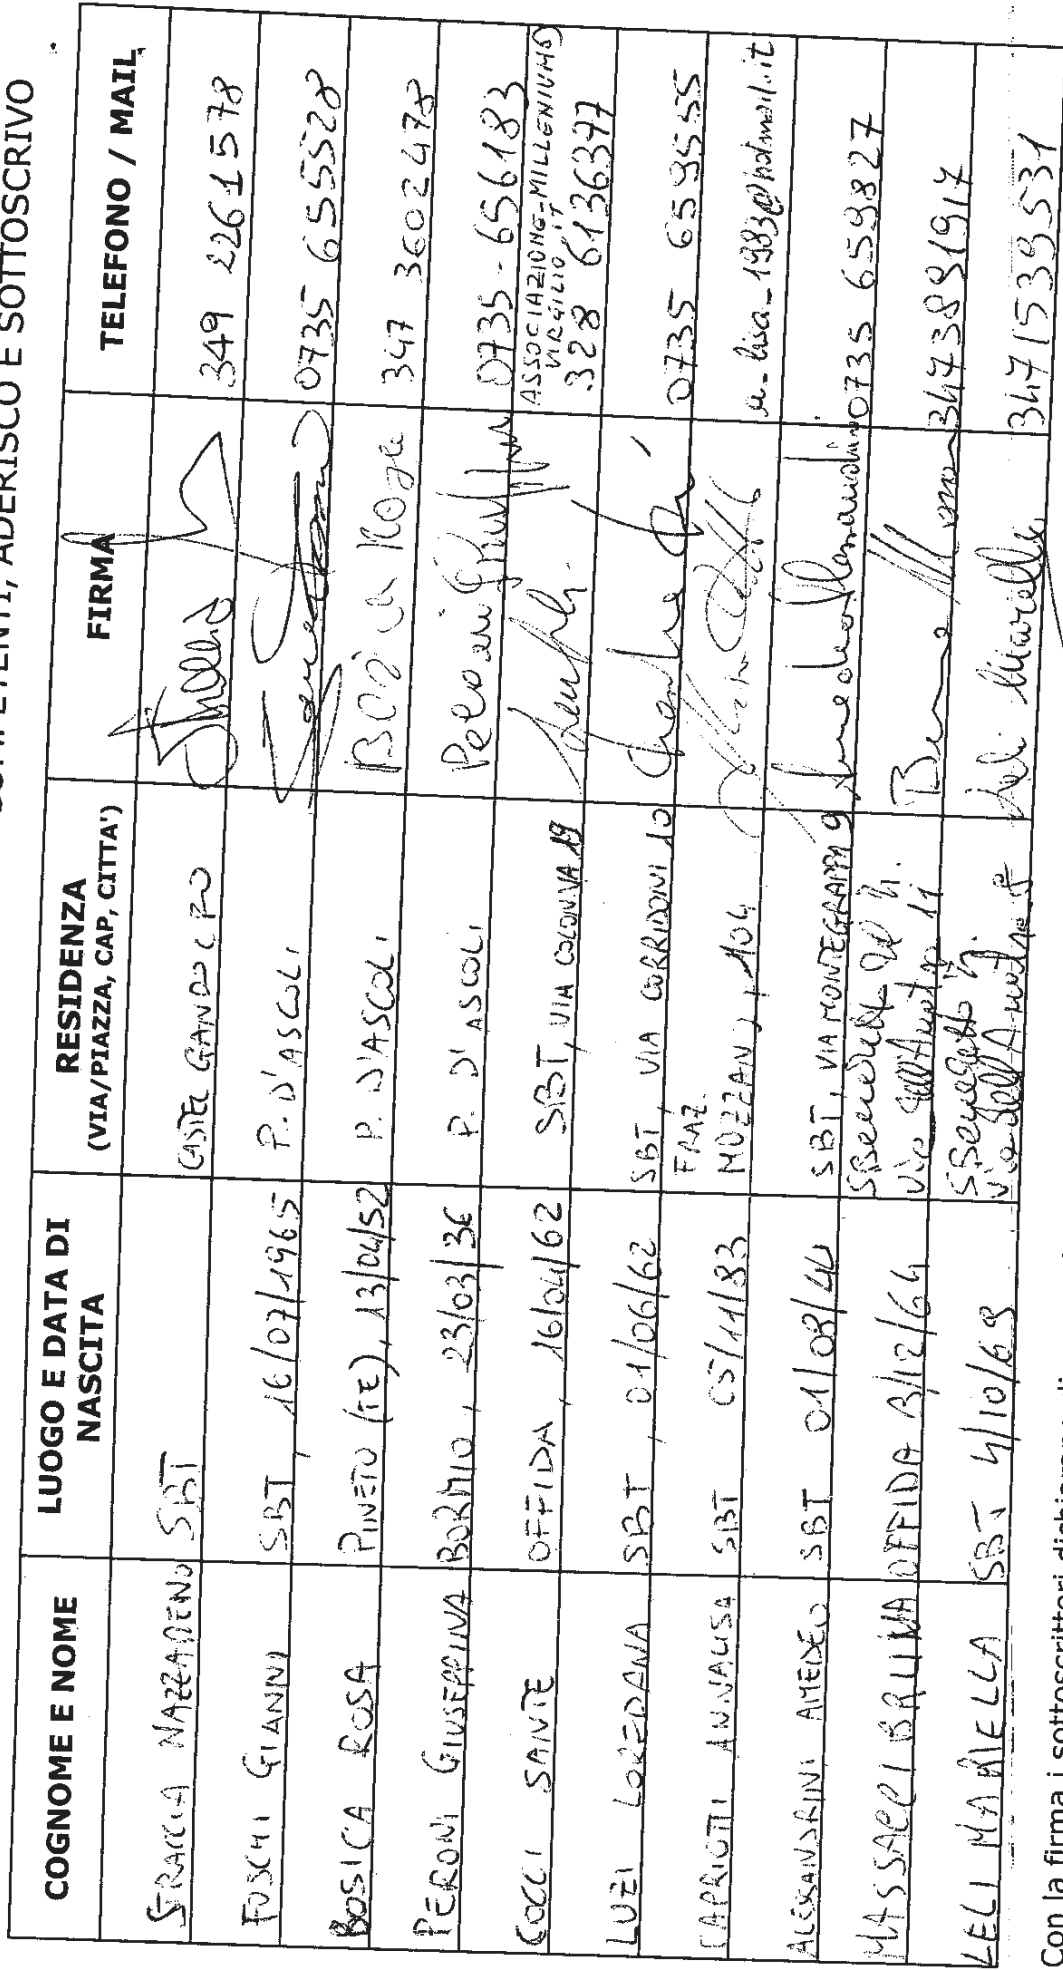 COMPETENTI, ADERISCO E SOTTOSCRIVO
COGNOME E NOME LUOGO E DATA DI NASCITA RESIDENZA (VIA/PIAZZA, CAP, CITTA') FIRMA TELEFONO / MAIL
STRACCIA NAZZARENO SBT CASTEL GANDOLFO 349 2261578
FOSCHI GIANNI SBT, 16/07/1965 P. D'ASCOLI 0735 655528
BOSICA ROSA PINETO (TE), 13/04/52 P. D'ASCOLI Bosica Rosa 347 3602478
PERONI GIUSEPPINA BORMIO, 23/03/36 P. D'ASCOLI Peroni 0735-656183
COCCI SANTE OFFIDA, 16/04/62 SBT, VIA COLONNA 19 ASSOCIAZIONE-MILLENIUM@
VIRGILIO.IT
328 6136377
LUZI LOREDANA SBT, 01/06/62 SBT, VIA CORRIDONI 10 0735 659555
CAPRIOTTI ANNALISA SBT 05/11/83 FRAZ.
MOZZANO, 104 a_lisa_1983@hotmail.it
ALESSANDRINI AMEDEO SBT 01/08/44 SBT, VIA MONTEGRAPPA 9 Amedeo Alessandrini 0735 659827
MASSACCI BRUNA OFFIDA 3/12/64 SBenedetto del Tr.
via 11 Bruna 3473881917
LELI MARIELLA SBT 4/10/69 SBenedetto Tr.
via dell' Leli Mariella 3471539531
Con la firma i sottoscrittori dichiarano di